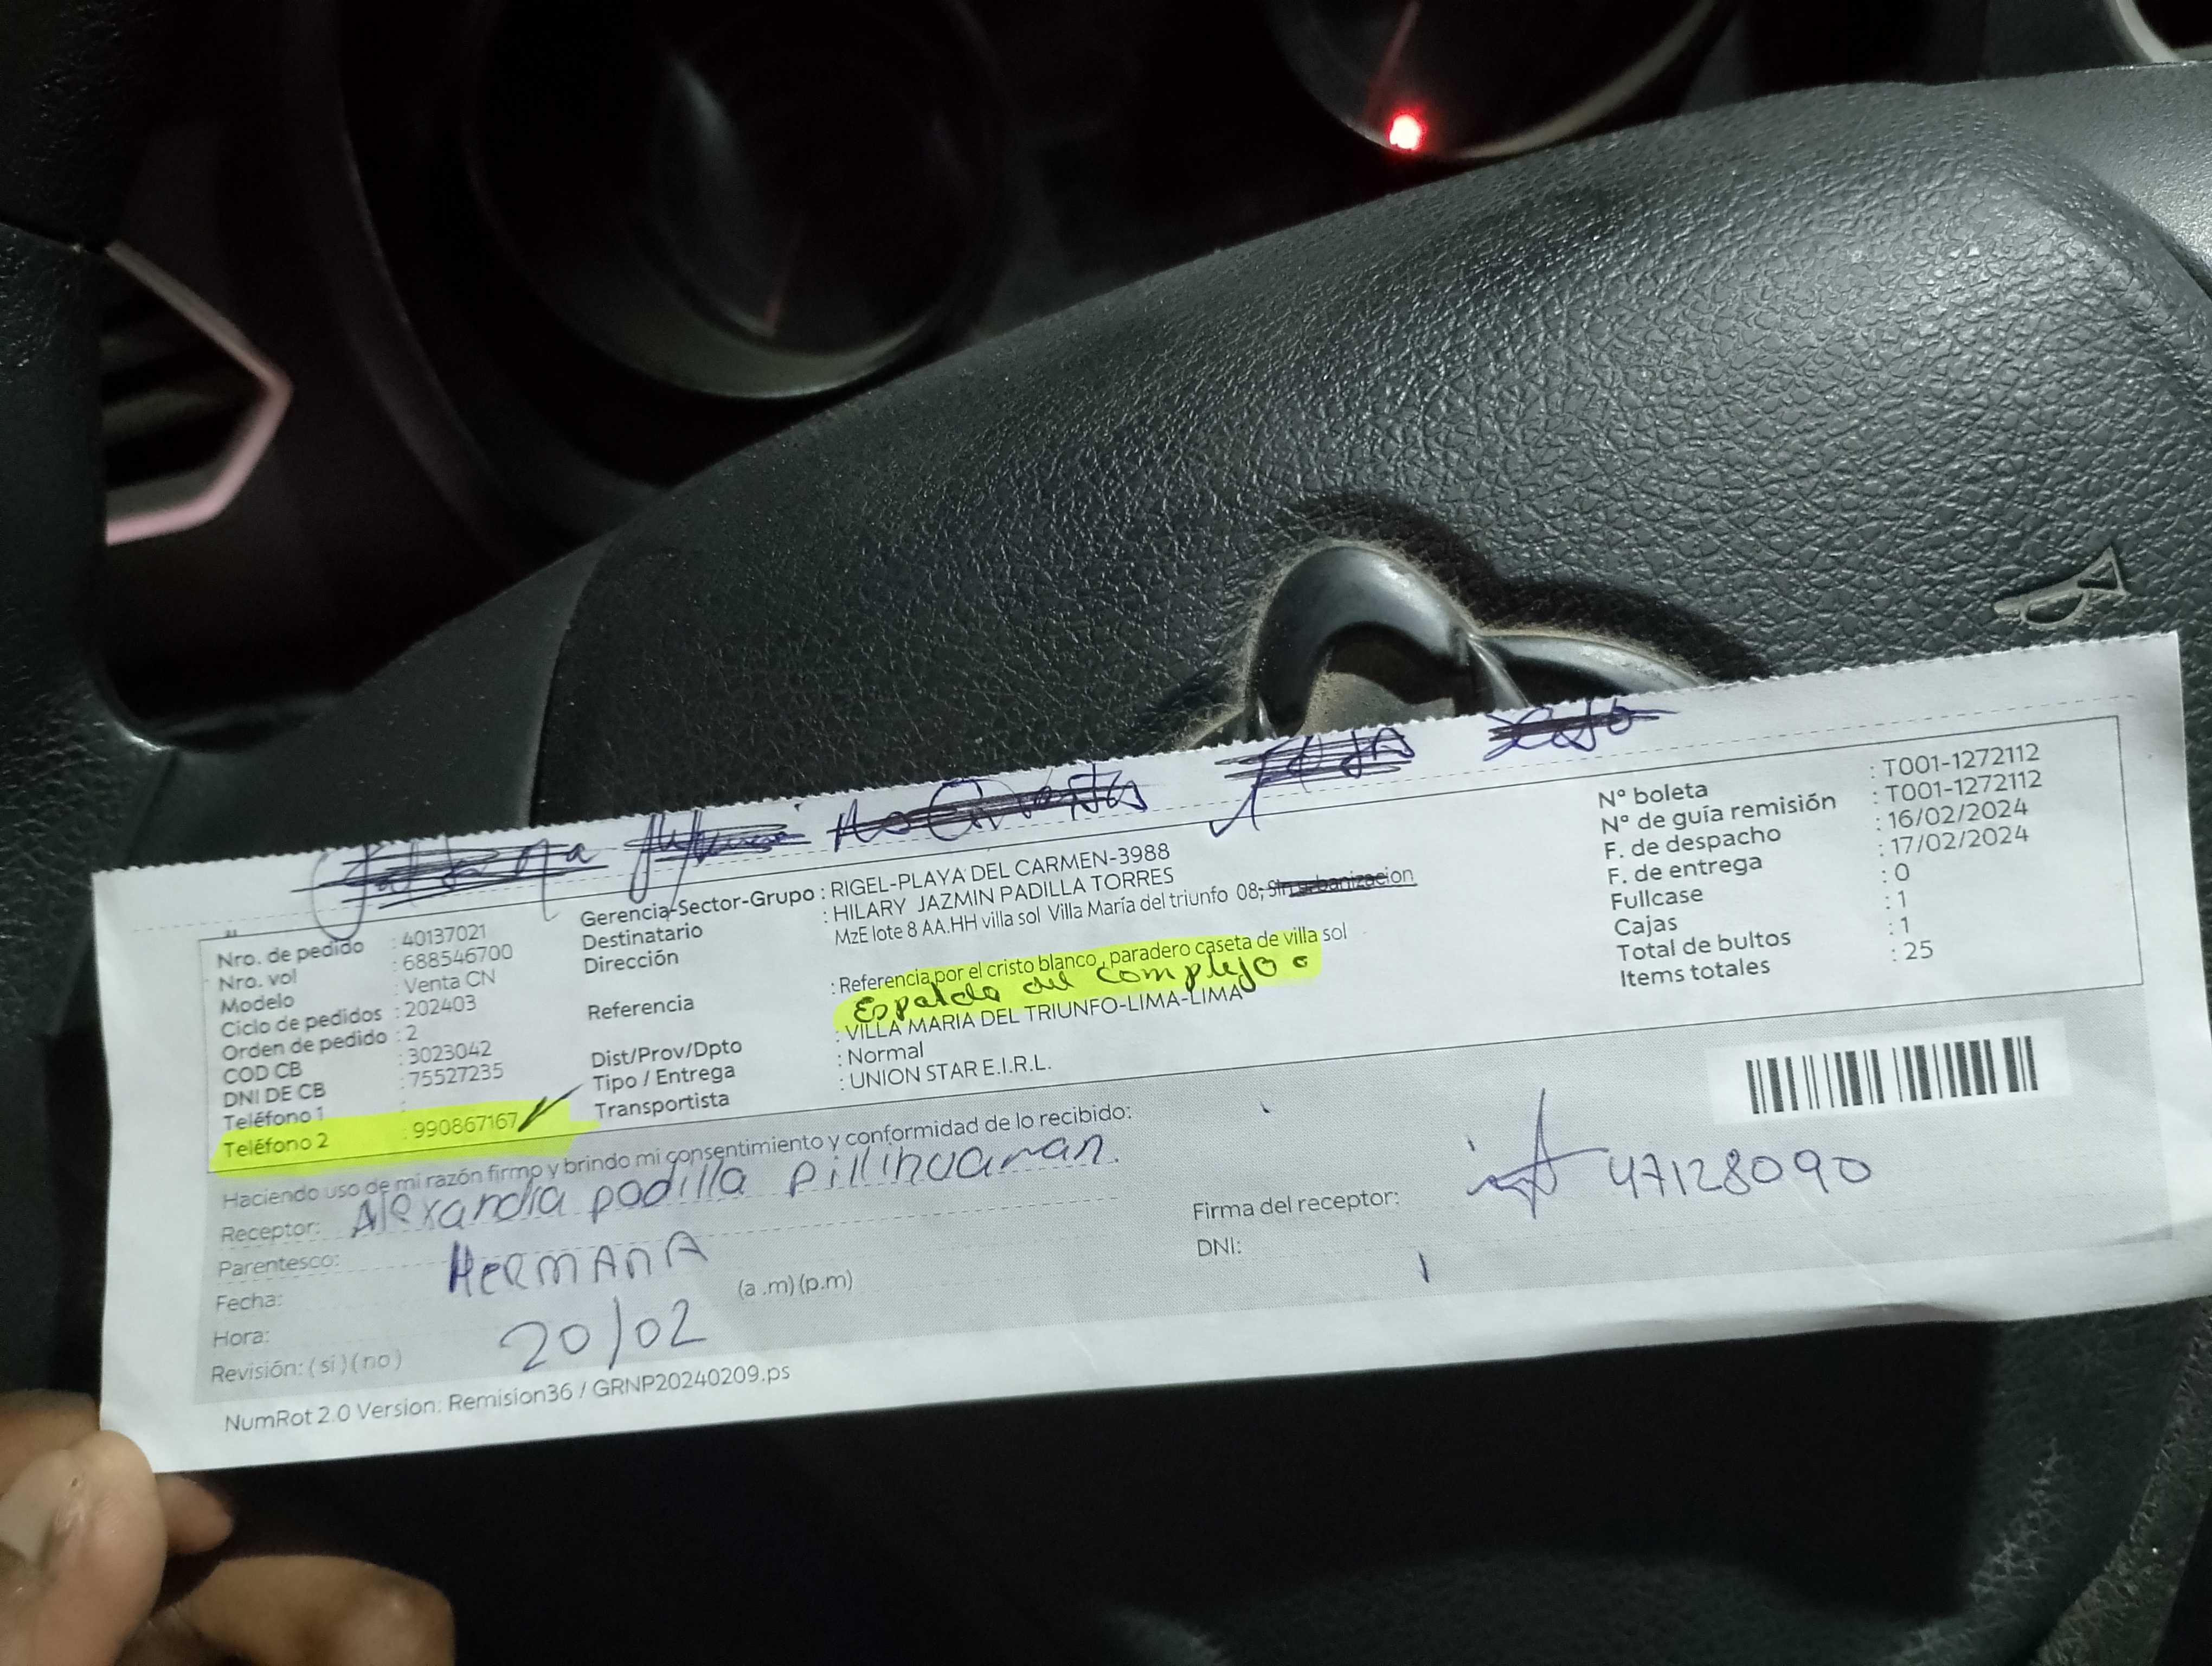 Nro. de pedido : 40137021
Nro. vol : 688546700
Modelo : Venta CN
Ciclo de pedidos : 202403
Orden de pedido : 2
COD CB : 3023042
DNI DE CB : 75527235
Teléfono 1 :
Teléfono 2 : 990867167
Gerencia-Sector-Grupo : RIGEL-PLAYA DEL CARMEN-3988
Destinatario : HILARY JAZMIN PADILLA TORRES
Dirección MzE lote 8 AA.HH villa sol Villa María del triunfo 08, Sin urbanizacion
Referencia : Referencia por el cristo blanco , paradero caseta de villa sol
Espalda del complejo
Dist/Prov/Dpto : VILLA MARIA DEL TRIUNFO-LIMA-LIMA
Tipo / Entrega : Normal
Transportista : UNION STAR E.I.R.L.
N° boleta : T001-1272112
N° de guía remisión : T001-1272112
F. de despacho : 16/02/2024
F. de entrega : 17/02/2024
Fullcase : 0
Cajas : 1
Total de bultos : 1
Items totales : 25
Haciendo uso de mi razón firmo y brindo mi consentimiento y conformidad de lo recibido:
Receptor: Alexandia padilla pillihuaman.
Parentesco: HERMANA
Fecha: 20/02
Hora: (a .m) (p.m)
Revisión: (si) (no)
Firma del receptor:
DNI: 47128090
NumRot 2.0 Version: Remision36 / GRNP20240209.ps